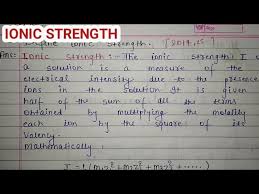 IONIC STRENGTH
Define ionic strength.
Ionic strength: The ionic strength I of
a solution is a measure of the
electrical intensity due to the presence
ions in the solution It is given
half of the sum of all the terms
obtained by multiplying the molality
each ion by the square of its
valency.
Mathematically:
I = ½ (m₁z₁² + m₂z₂² + m₃z₃² + ......)